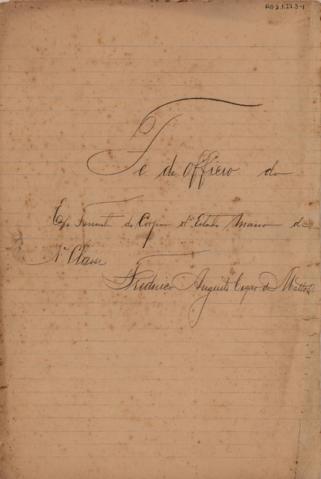 Fé de officio do
Tenente do Corpo d' Estado Maior de
1ª Classe
Frederico Augusto Cezar de Mattos